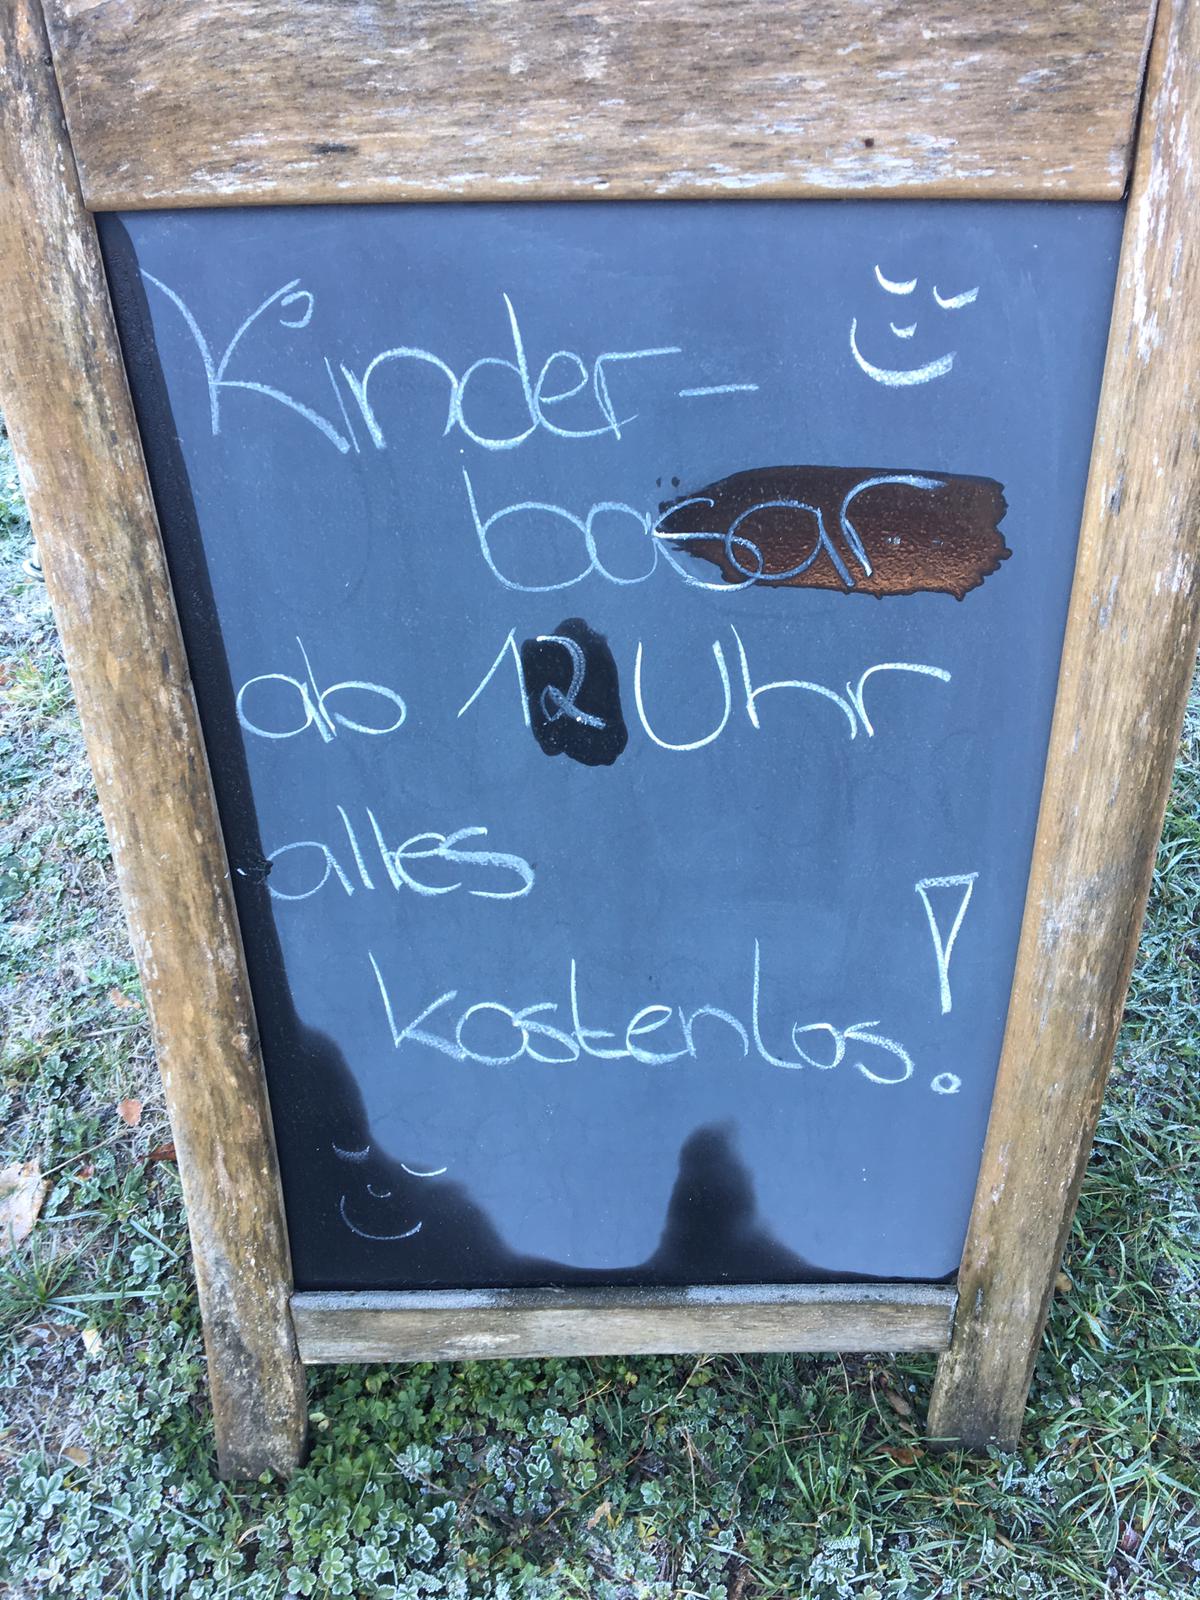 Kinder-
basar
ab 12 Uhr
alles
kostenlos!